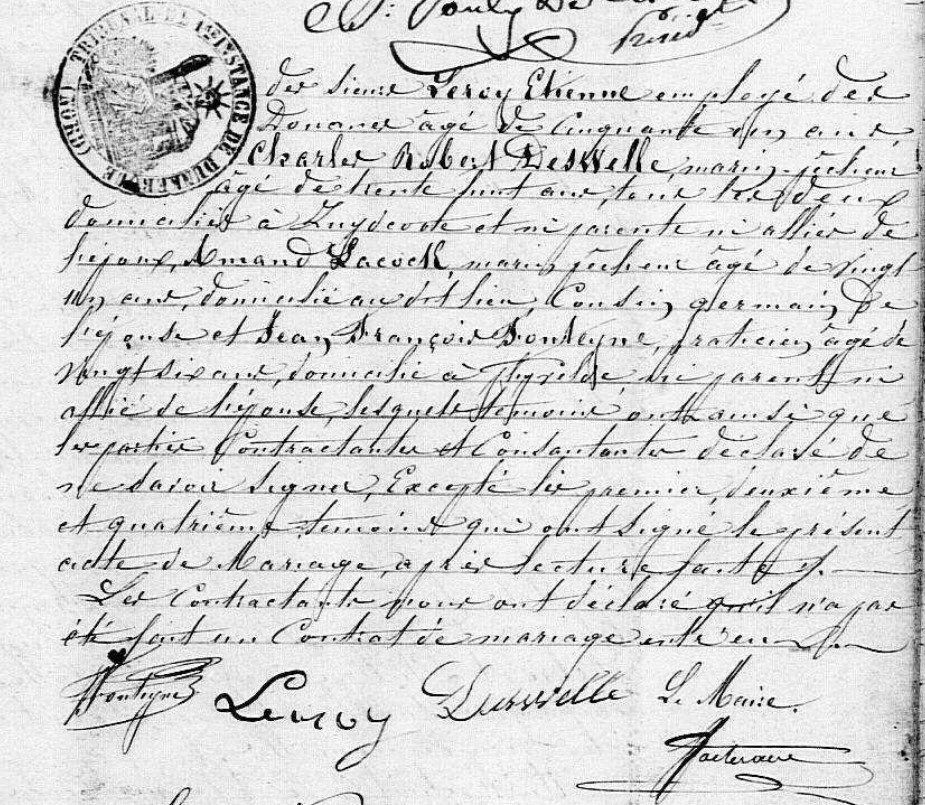 TRIBUNAL DE 1ère INSTANCE DE DUNKERQUE (NORD)
des sieurs Leroy Etienne employé des
Douanes âgé de Cinquante un ans
Charles Robert Deswelle, marin-pêcheur
âgé de trente sept ans, tous les deux
domiciliés à Zuydcoote et ni parents ni alliés de
l'époux, Amand Lacock, marin pêcheur âgé de vingt
un ans, domicilié au dit lieu, Cousin germain De
l'épouse et Jean François Fonteyne, praticien âgé de
Vingt six ans, domicilié à Ghyvelde, ni parent ni
allié de l'épouse, lesquels témoins ont ainsi que
les parties Contractantes et Consantantes déclaré de
ne savoir signer, Excepté les premier, deuxième
et quatrième témoins qui ont signé le présent
acte de Mariage, après lecture faite ./.
Les Contractants nous ont déclaré qu'il n'a pas
été fait un Contrat de mariage entr'eux
Fonteyne Leroy Deswelle Le Maire.